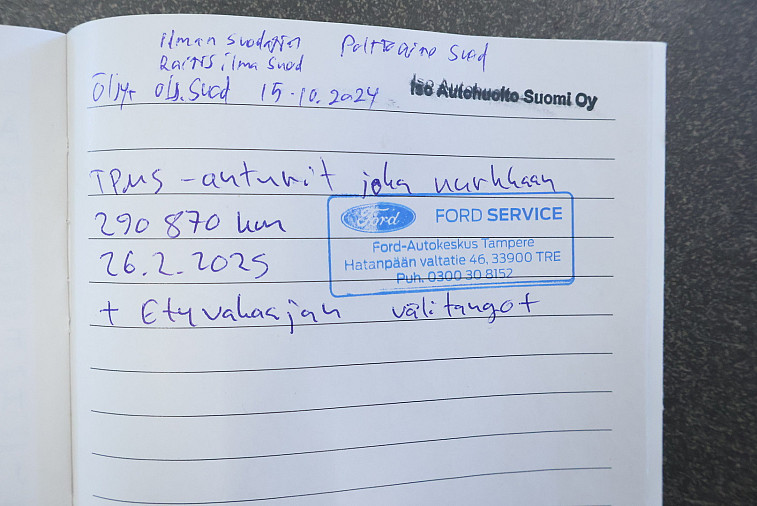 ilman suodatin Polttoaine suod
Raitis ilma suod
Öljyt olj. suod 15.10.2024 Iso Autohuolto Suomi Oy
TPMS -anturit joka nurkkaan
290 870 km
Ford FORD SERVICE
Ford-Autokeskus Tampere
Hatanpään valtatie 46, 33900 TRE
Puh. 0300 30 8152
26.2.2025
+ Etuvakaajan välitangot